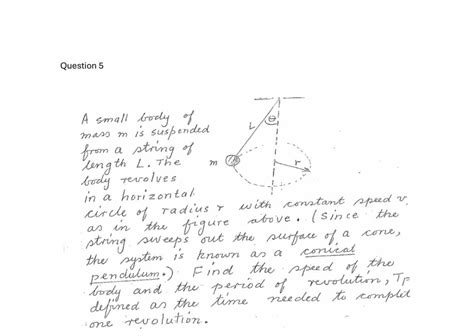 Question 5
A small body of
mass m is suspended
from a string of
length L. The
body revolves
in a horizontal
circle of radius r with constant speed v
as in the figure above. (Since the
string sweeps out the surface of a cone,
the system is known as a conical
pendulum.) Find the speed of the
body and the period of revolution, Tp
defined as the time needed to complet
one revolution.
θ
L
m
r